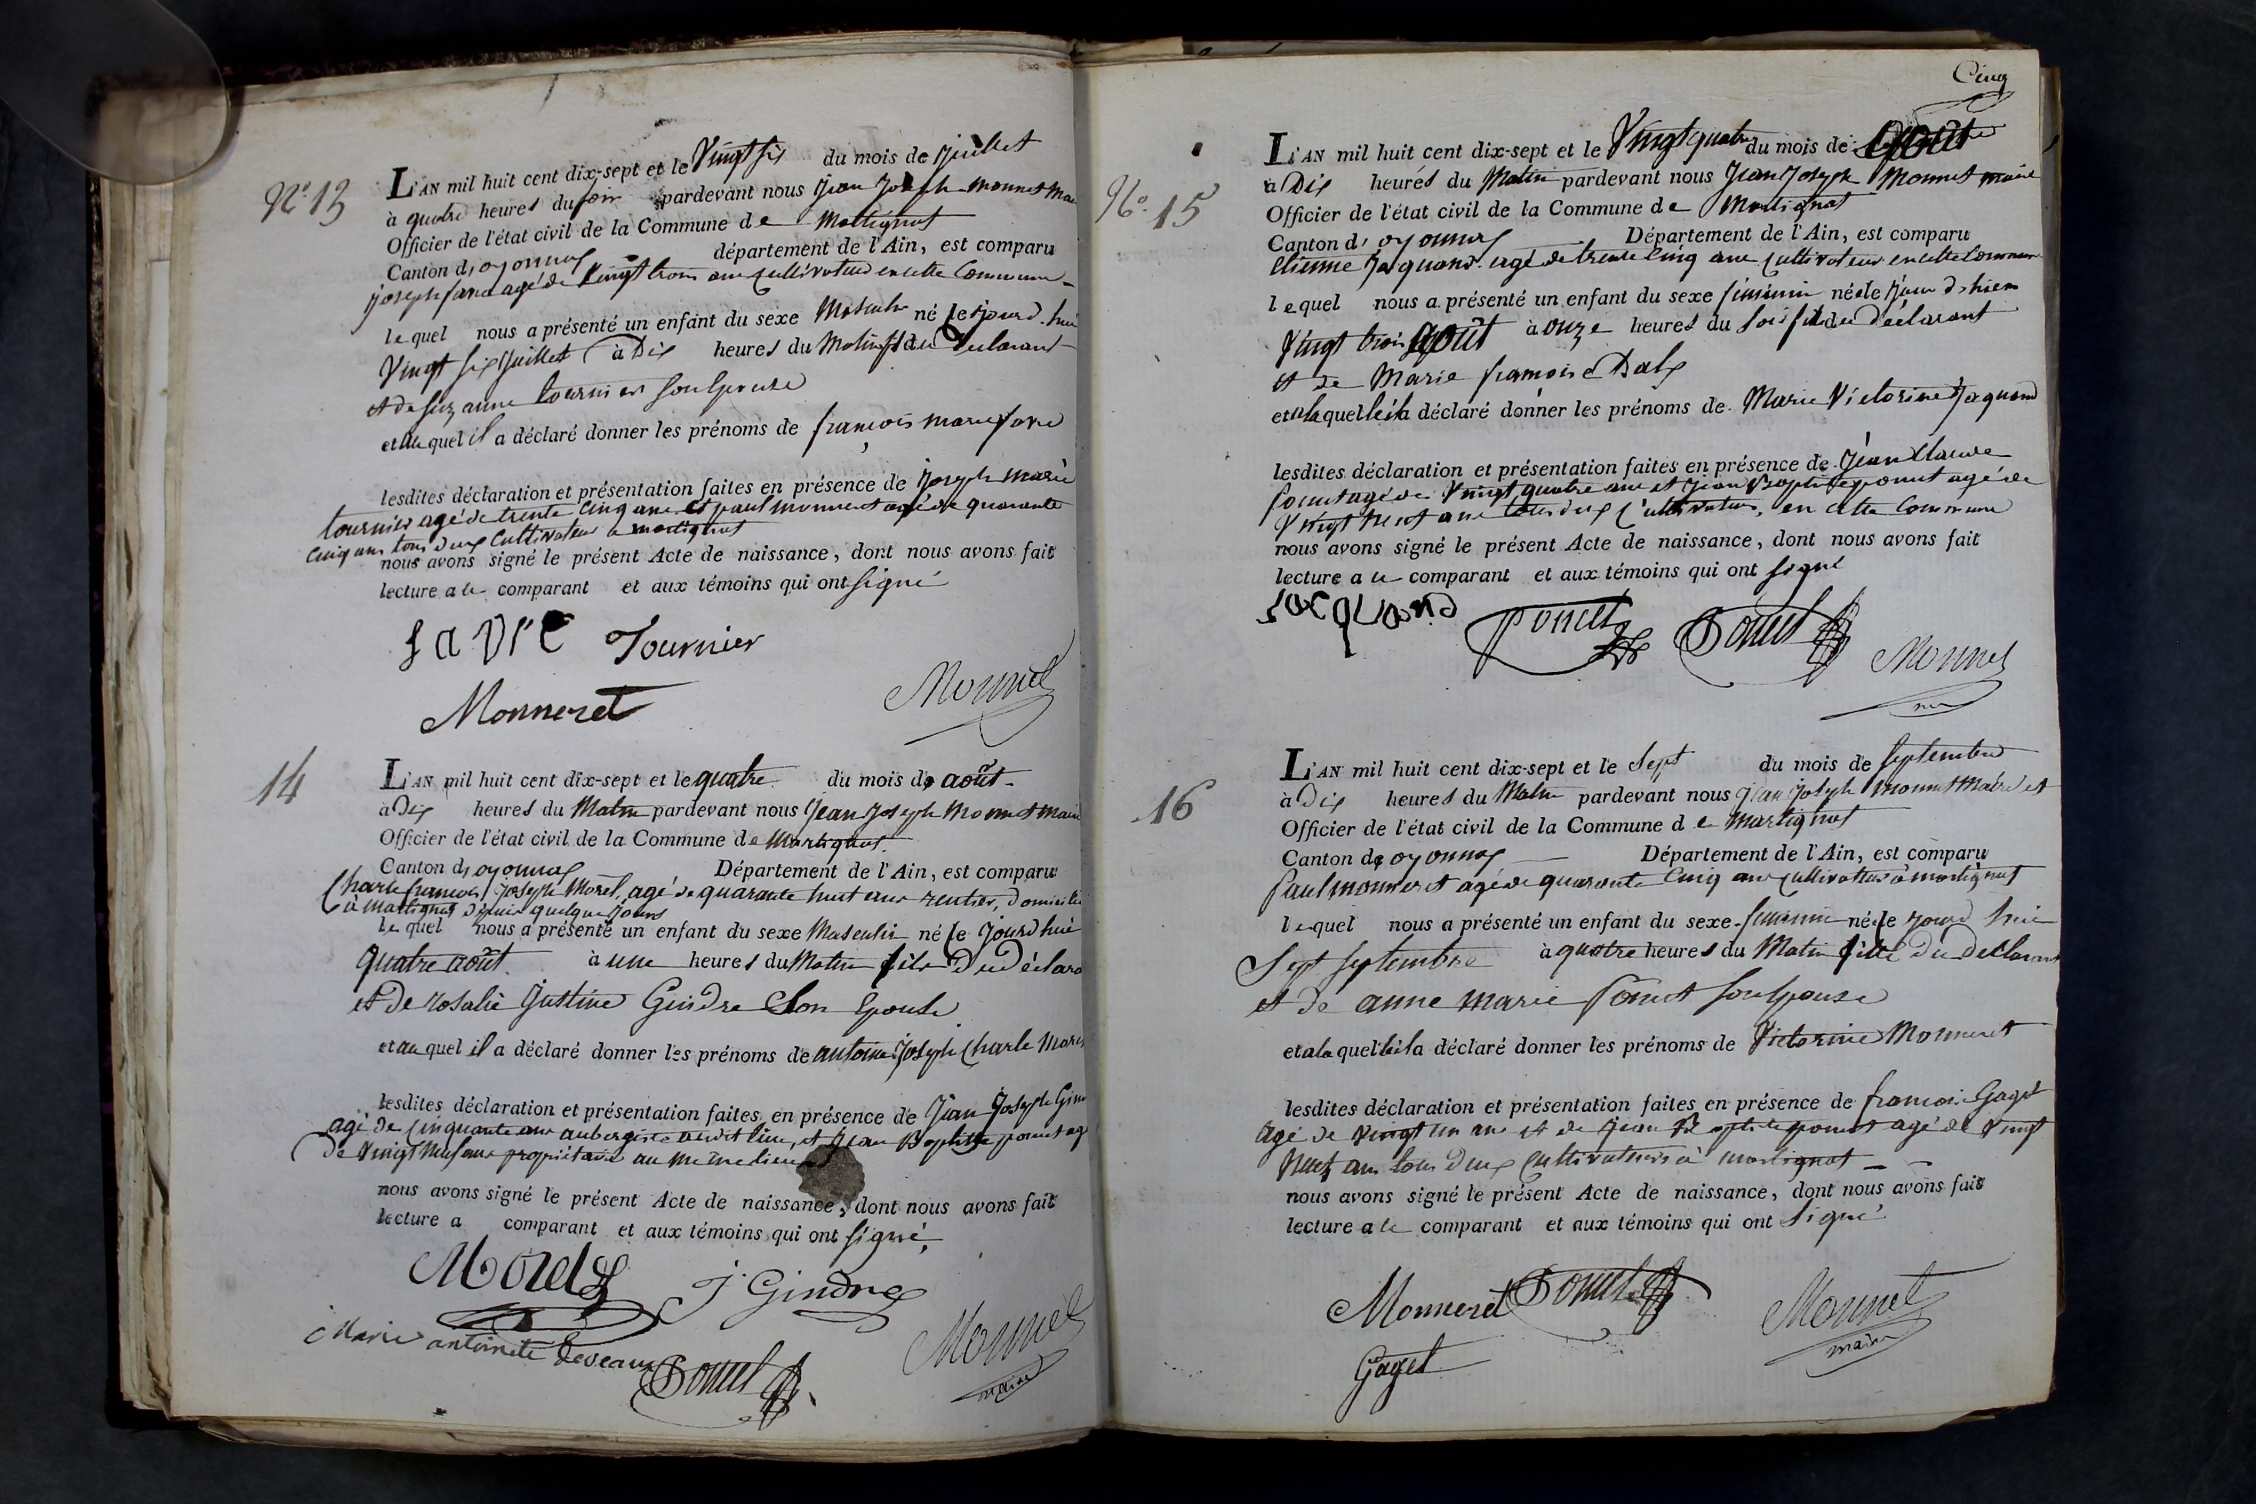 N.º 13
L'AN mil huit cent dix-sept et le Vingt six du mois de juillet
à quatre heures du soir pardevant nous Jean Joseph monnet Mai
Officier de l'état civil de la Commune de Martignat
Canton d'oyonnax département de l'Ain, est comparu
joseph favre agé de Vingt trois ans cultivateur en cette Commune
lequel nous a présenté un enfant du sexe Masculin né le jourd. hui
Vingt six juillet à Dix heures du Matin fils du Declarant
et de suzanne tournier son Epouse
et au quel il a déclaré donner les prénoms de françois marie favre
lesdites déclaration et présentation faites en présence de joseph marie
tournier agé de trente cinq ans et paul monneret agé de quarante
cinq ans tous deux cultivateur a martignat
nous avons signé le présent Acte de naissance, dont nous avons fait
lecture a le comparant et aux témoins qui ont signé
favre Tournier
Monneret Monnet
14
L'AN mil huit cent dix-sept et le quatre du mois de août
à Dix heures du Matin pardevant nous Jean Joseph Monnet maire
Officier de l'état civil de la Commune de Martignat
Canton d'oyonnax Département de l'Ain, est comparu
Charle françois Joseph Morel, agé de quarante huit ans rentier, domicilié
à Martignat depuis quelque jours
lequel nous a présenté un enfant du sexe Masculin né le jourd'hui
quatre août à une heures du Matin fils Du Déclara
et de rosalie Justine Gindre Son Epouse
et au quel il a déclaré donner les prénoms de antoine Joseph Charle Morel
lesdites déclaration et présentation faites en présence de Jean Joseph Gin
agé de Cinquante ans aubergiste audit lieu, et Jean Baptiste poncet ag
de Vingt neuf ans propriétaire au même lieu
nous avons signé le présent Acte de naissance, dont nous avons fait
lecture a comparant et aux témoins qui ont signé,
Morel J. Gindre
Marie antoinete deveaux Poncet Monnet
maire
Cinq
N.º 15
L'AN mil huit cent dix-sept et le Vingt quatre du mois de août
à Dix heures du Matin pardevant nous Jean Joseph Monnet maire
Officier de l'état civil de la Commune de Martignat
Canton d'oyonnax Département de l'Ain, est comparu
Etienne Jaquand agé de trente Cinq ans Cultivateur en cette Commune
lequel nous a présenté un enfant du sexe féminin née le jour d'hier
Vingt trois août à onze heures du soir fille du Déclarant
et de Marie françoise Dalx
et a la quelle il a déclaré donner les prénoms de Marie Victorine Jaquand
lesdites déclaration et présentation faites en présence de Jean Claude
Poncet agé de Vingt quatre ans et Jean Baptiste poncet agé de
Vingt neuf ans tous deux Cultivateur, en cette Commune
nous avons signé le présent Acte de naissance, dont nous avons fait
lecture a le comparant et aux témoins qui ont signé
Jacquand Poncet Poncet Monnet
16
L'AN mil huit cent dix-sept et le Sept du mois de Septembre
à Dix heures du Matin pardevant nous Jean Joseph Monnet Maire et
Officier de l'état civil de la Commune de Martignat
Canton de oyonnax Département de l'Ain, est comparu
Paul monneret agé de quarante Cinq ans Cultivateur à martignat
lequel nous a présenté un enfant du sexe féminin née le jourd hui
Sept Septembre à quatre heures du Matin fille Du Déclarant
et de anne marie Poncet son Epouse
et a la quelle il a déclaré donner les prénoms de Victorine Monneret
lesdites déclaration et présentation faites en présence de françois Gaget
agé de vingt un ans et de Jean Baptiste poncet agé de Vingt
Neuf ans tous deux Cultivateurs à martignat
nous avons signé le présent Acte de naissance, dont nous avons fait
lecture a le comparant et aux témoins qui ont Signé
Monneret Poncet Monnet
maire
Gaget